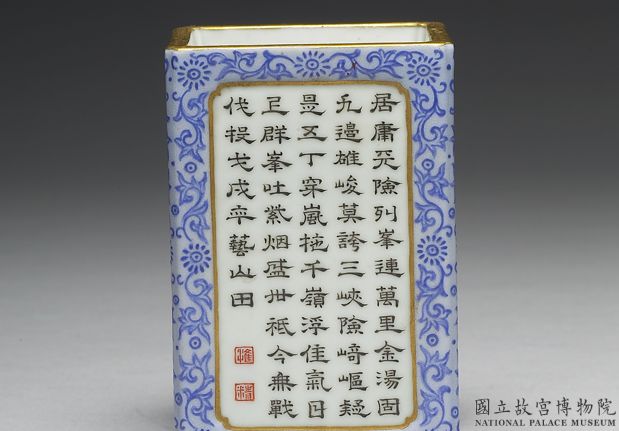 居庸天險列峯連萬里金湯固
九邊雄峻莫誇三峽險崎嶇疑
是五丁穿嵐拖千嶺浮佳氣日
上群峯吐紫烟盛世祗今無戰
伐投戈戍卒藝山田
惟
精
國立故宮博物院
NATIONAL PALACE MUSEUM